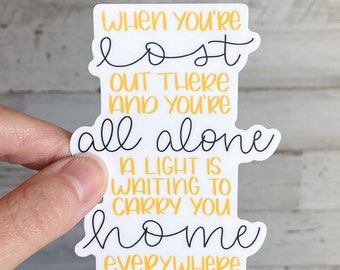 WHEN YOU'RE
lost
OUT THERE
AND YOU'RE
all alone
A LIGHT IS
WAITING TO
CARRY YOU
home
EVERYWHERE